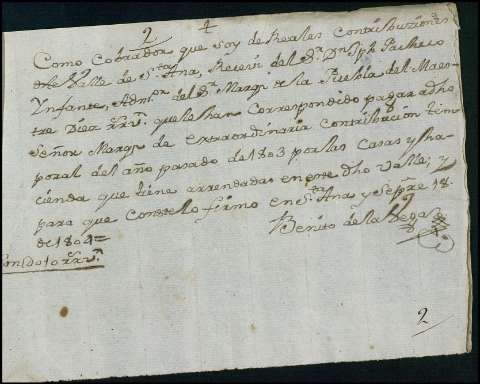 2 4
Como Cobrador que soy de Reales Contribuziones
de el Valle de Sta Ana, Reciví del Sr. Dn Jph Pacheco
Ynfante, Admor del Sr. Marqs de la Puebla del Maes-
tre Diez rr.vn. que le han Correspondido pagar a dho
Señor Marqs de extraordinaria Contribucion tem-
poral del año pasado de 1803 por las Casas y ha-
cienda que tiene arrendadas en este dho Valle; y
para que Conste lo firmo en Sta Ana y Sepre 18.
de 1804=
Benito de la Vega
Son 10 rr.vn
2